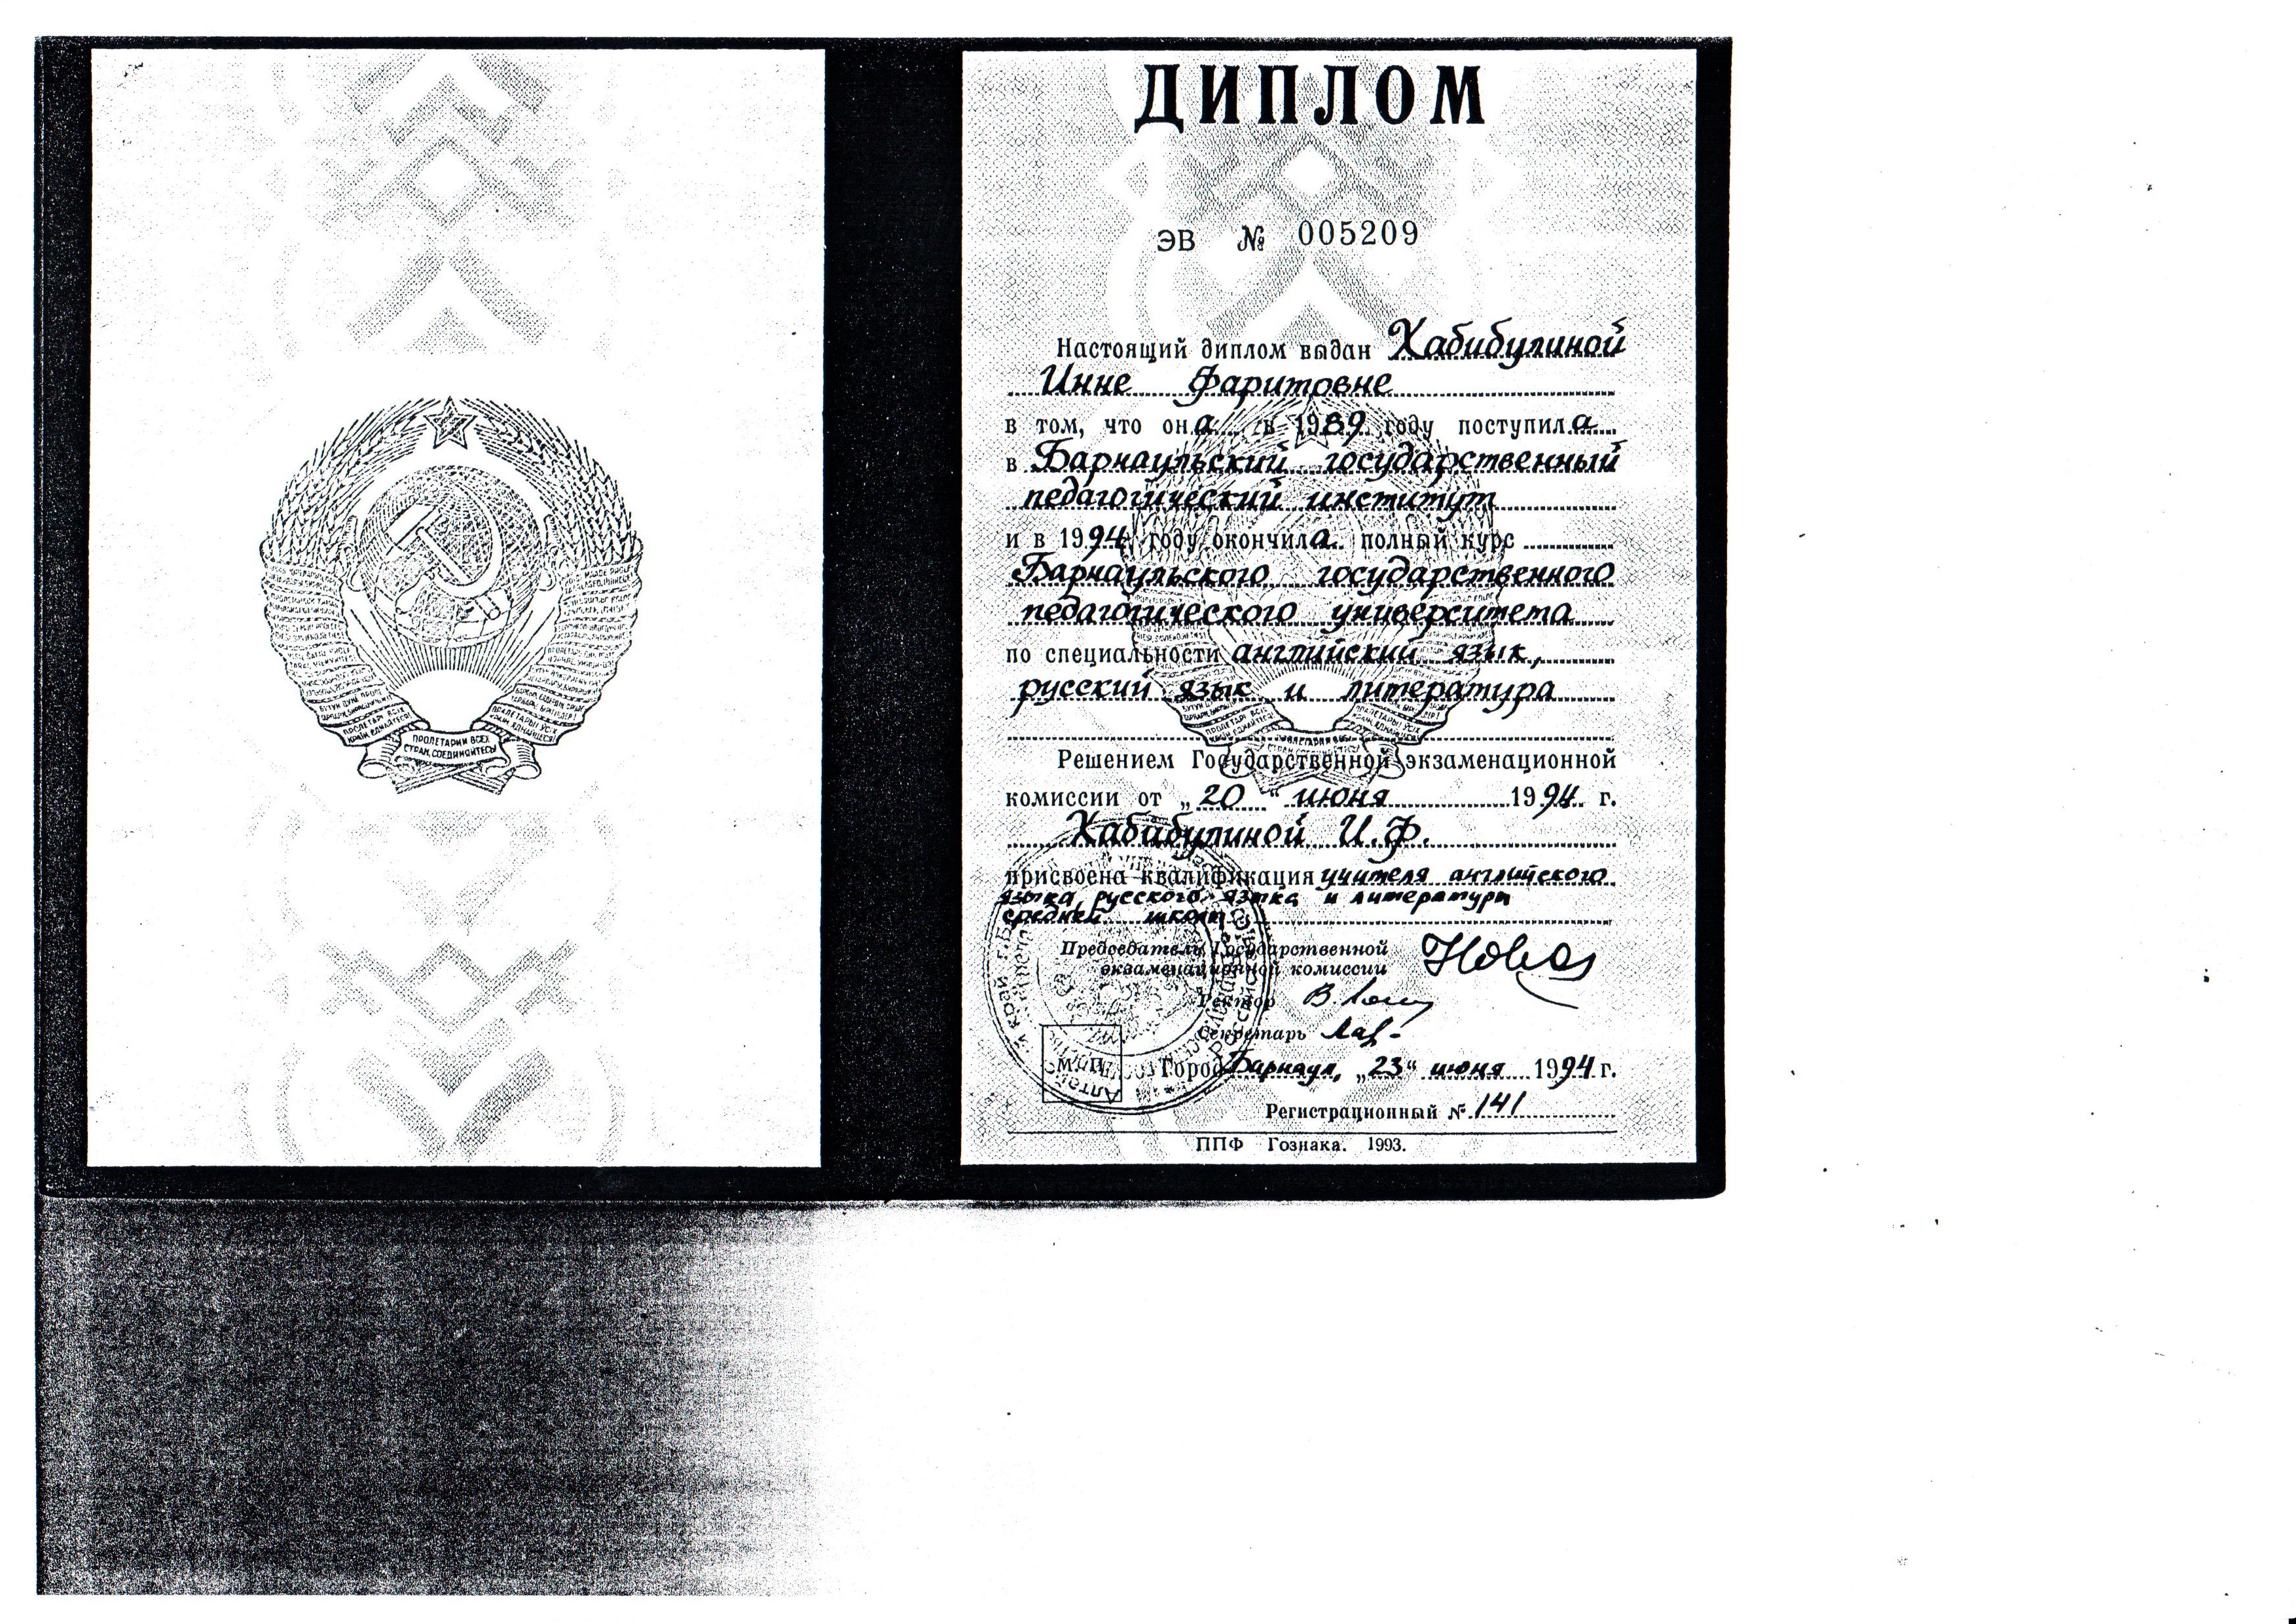 ПРОЛЕТАРИИ ВСЕХ
СТРАН, СОЕДИНЯЙТЕСЬ!
ДИПЛОМ
ЭВ № 005209
Настоящий диплом выдан Хабибулиной
Инне Фаритовне
в том, что она в 1989 году поступила
в Барнаульский государственный
педагогический институт
и в 1994 году окончила полный курс
Барнаульского государственного
педагогического университета
по специальности английский язык,
русский язык и литература
Решением Государственной экзаменационной
комиссии от „20“ июня 1994 г.
Хабибулиной И.Ф.
присвоена квалификация учителя английского
языка, русского языка и литературы
средней школы
Председатель Государственной
экзаменационной комиссии
Ректор
Секретарь
М.П.
Город Барнаул, „23“ июня 1994 г.
Регистрационный № 141
ППФ Гознака. 1993.